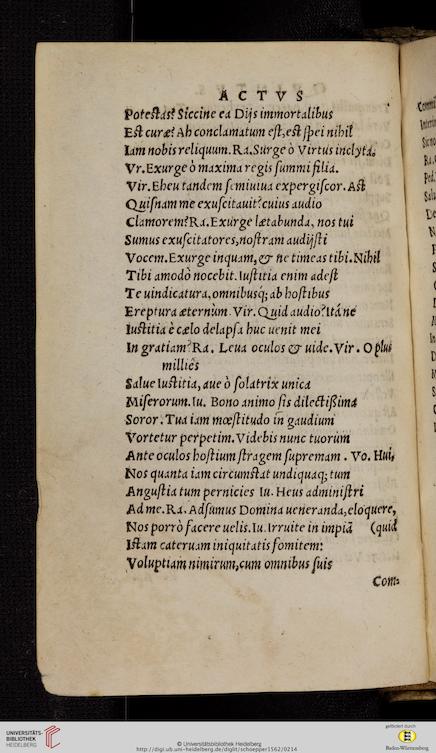 ACTVS
Potestas? Siccine ea Dijs immortalibus
Est curæ? Ah conclamatum est, est spei nihil
Iam nobis reliquum. Ra. Surge ô Virtus inclyta.
Vr. Exurge ô maxima regis summi filia.
Vir. Eheu tandem semiuiua expergiscor. Ast
Quisnam me exuscitauit? cuius audio
Clamorem? Ra. Exurge lætabunda, nos tui
Sumus exuscitatores, nostram audijsti
Vocem. Exurge inquam, & ne timeas tibi. Nihil
Tibi amodò nocebit. Iustitia enim adest
Te uindicatura, omnibusq; ab hostibus
Ereptura æternùm. Vir. Quid audio? Itáne
Iustitia è cælo delapsa huc uenit mei
In gratiam? Ra. Leua oculos & uide. Vir. O plus
millies
Salue Iustitia, aue ô solatrix unica
Miserorum. Iu. Bono animo sis dilectißima
Soror. Tua iam mœstitudo in gaudium
Vortetur perpetim. Videbis nunc tuorum
Ante oculos hostium stragem supremam. Vo. Hui,
Nos quanta iam circumstat undiquaq; tum
Angustia tum pernicies Iu. Heus administri
Ad me. Ra. Adsumus Domina ueneranda, eloquere,
Nos porrò facere uelis. Iu. Irruite in impiã (quid
Istam cateruam iniquitatis fomitem:
Voluptiam nimirum, cum omnibus suis
Com-
UNIVERSITÄTS-
BIBLIOTHEK
HEIDELBERG
© Universitätsbibliothek Heidelberg
http://digi.ub.uni-heidelberg.de/diglit/schoepper1562/0214
gefördert durch
Baden-Württemberg